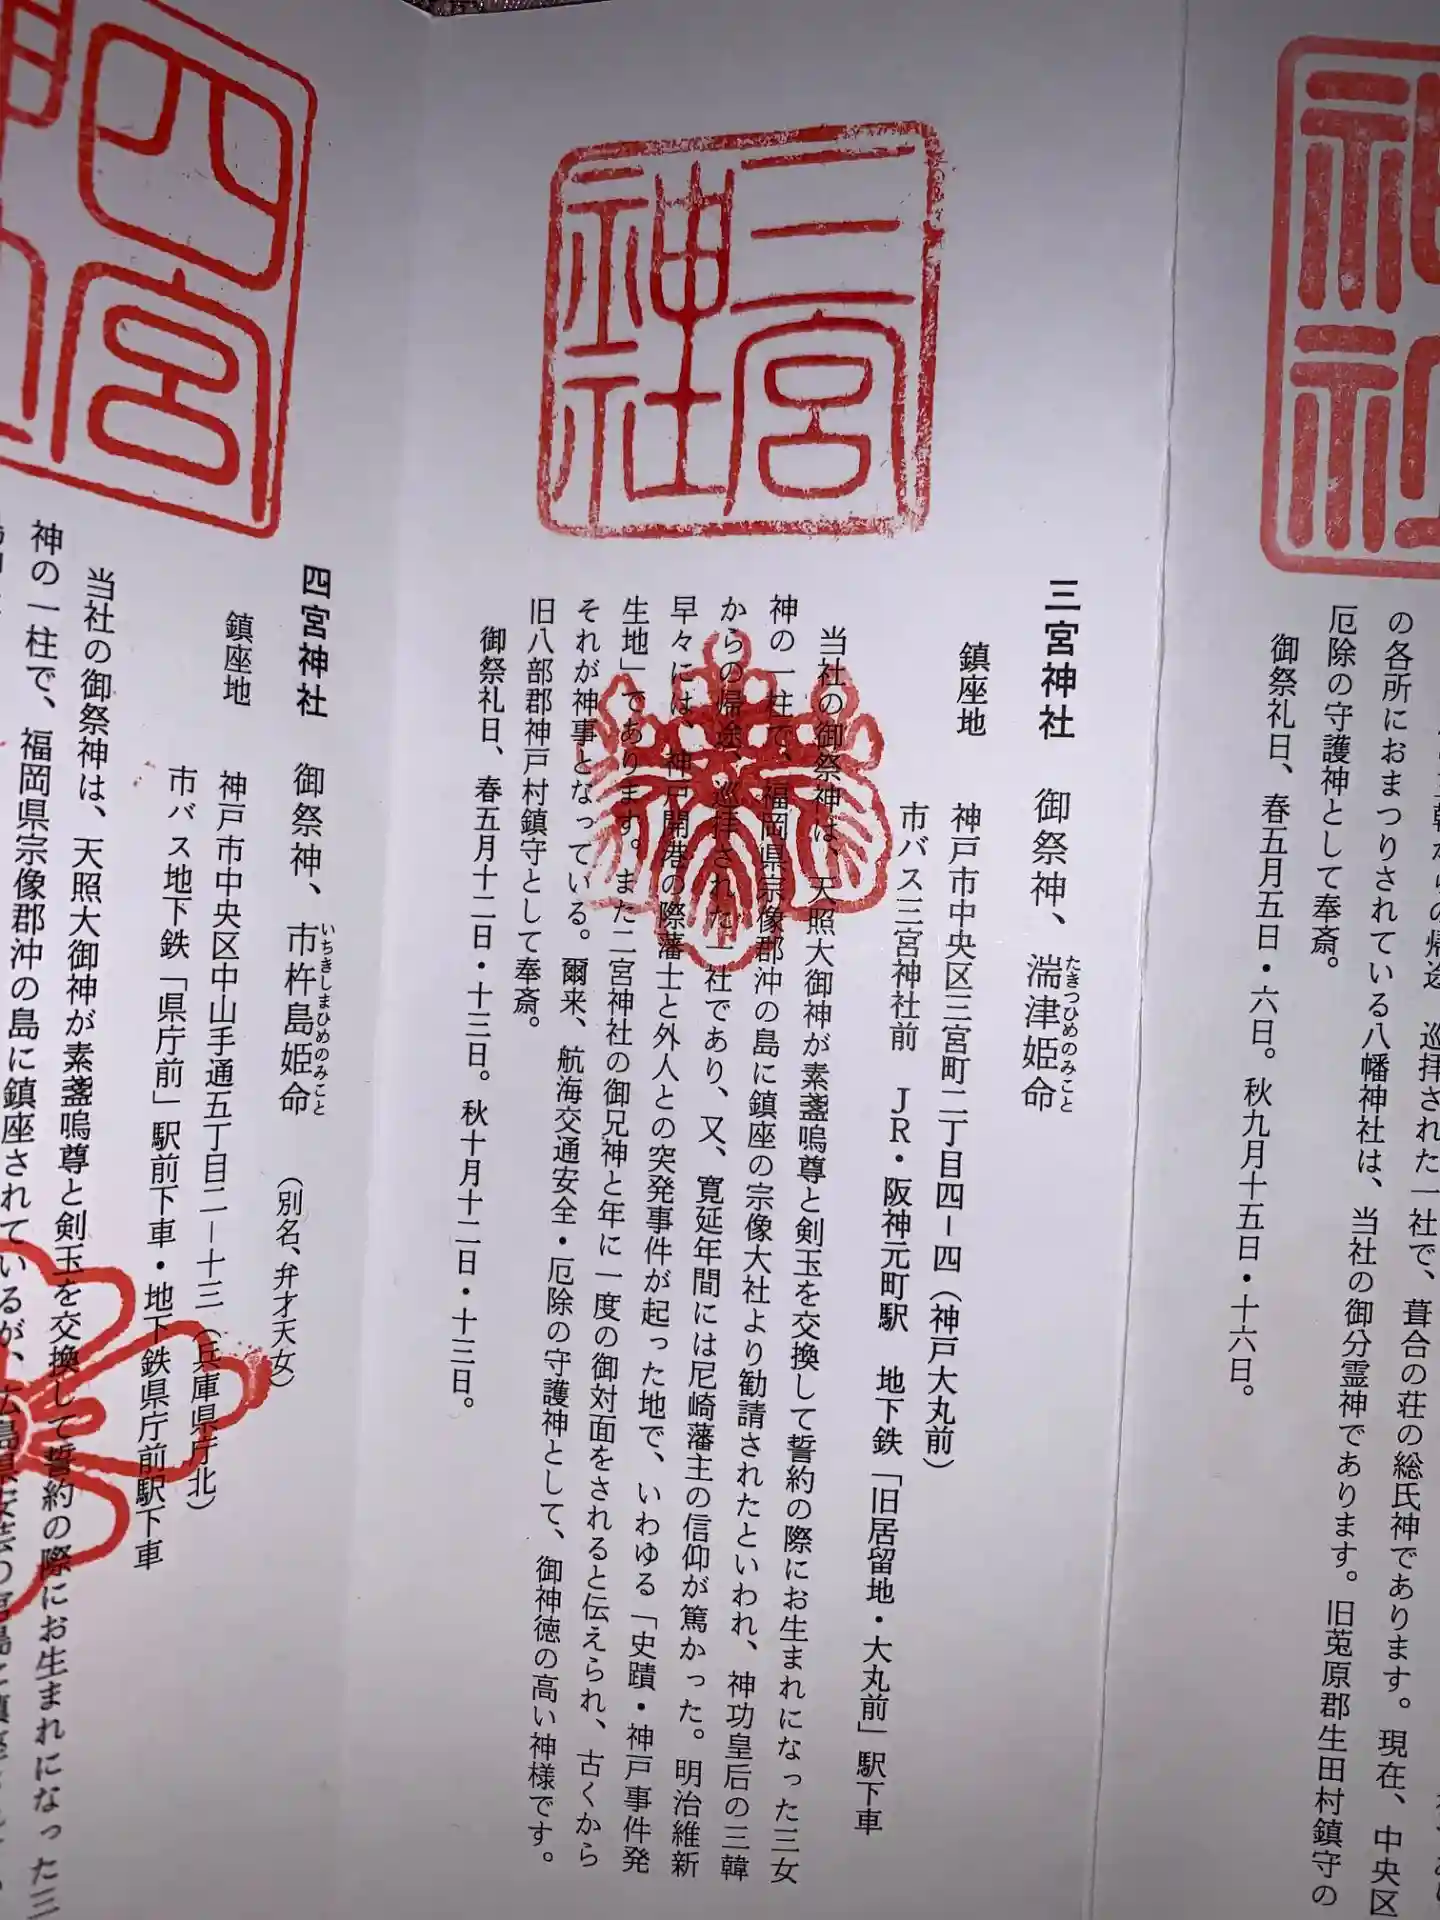 神社
の各所におまつりされている八幡神社は、当社の御分霊神であります。旧菟原郡生田村鎮守の
厄除の守護神として奉斎。
御祭礼日、春五月五日・六日。秋九月十五日・十六日。
巡拝された一社で、葺合の荘の総氏神であります。現在、中央区
三宮神社
三宮神社 御祭神、湍津姫命
たきつひめのみこと
鎮座地 神戸市中央区三宮町二丁目四－四（神戸大丸前）
市バス三宮神社前 JR・阪神元町駅 地下鉄「旧居留地・大丸前」駅下車
当社の御祭神は、天照大御神が素盞嗚尊と剣玉を交換して誓約の際にお生まれになった三女
神の一柱で、福岡県宗像郡沖の島に鎮座の宗像大社より勧請されたといわれ、神功皇后の三韓
からの帰途、巡拝された一社であり、又、寛延年間には尼崎藩主の信仰が篤かった。明治維新
早々には、神戸開港の際藩士と外人との突発事件が起った地で、いわゆる「史蹟・神戸事件発
生地」であります。また二宮神社の御兄神と年に一度の御対面をされると伝えられ、古くから
それが神事となっている。爾来、航海交通安全・厄除の守護神として、御神徳の高い神様です。
旧八部郡神戸村鎮守として奉斎。
御祭礼日、春五月十二日・十三日。秋十月十二日・十三日。
四宮
四宮神社 御祭神、市杵島姫命 （別名、弁才天女）
いちきしまひめのみこと
鎮座地 神戸市中央区中山手通五丁目二－十三（兵庫県庁北）
市バス地下鉄「県庁前」駅前下車・地下鉄県庁前駅下車
当社の御祭神は、天照大御神が素盞嗚尊と剣玉を交換して誓約の際にお生まれになった三
神の一柱で、福岡県宗像郡沖の島に鎮座されているが、広島県安芸の宮島に